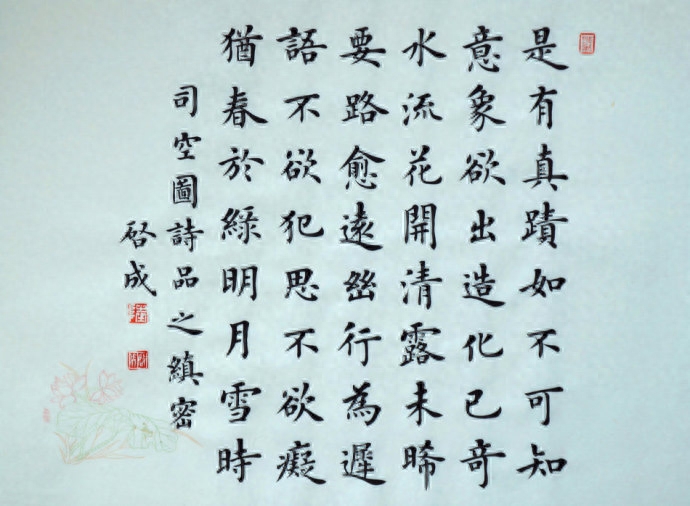 是有真蹟如不可知
意象欲出造化已奇
水流花開清露未晞
要路愈遠幽行為遲
語不欲犯思不欲癡
猶春於綠明月雪時
司空圖詩品之縝密
啓成